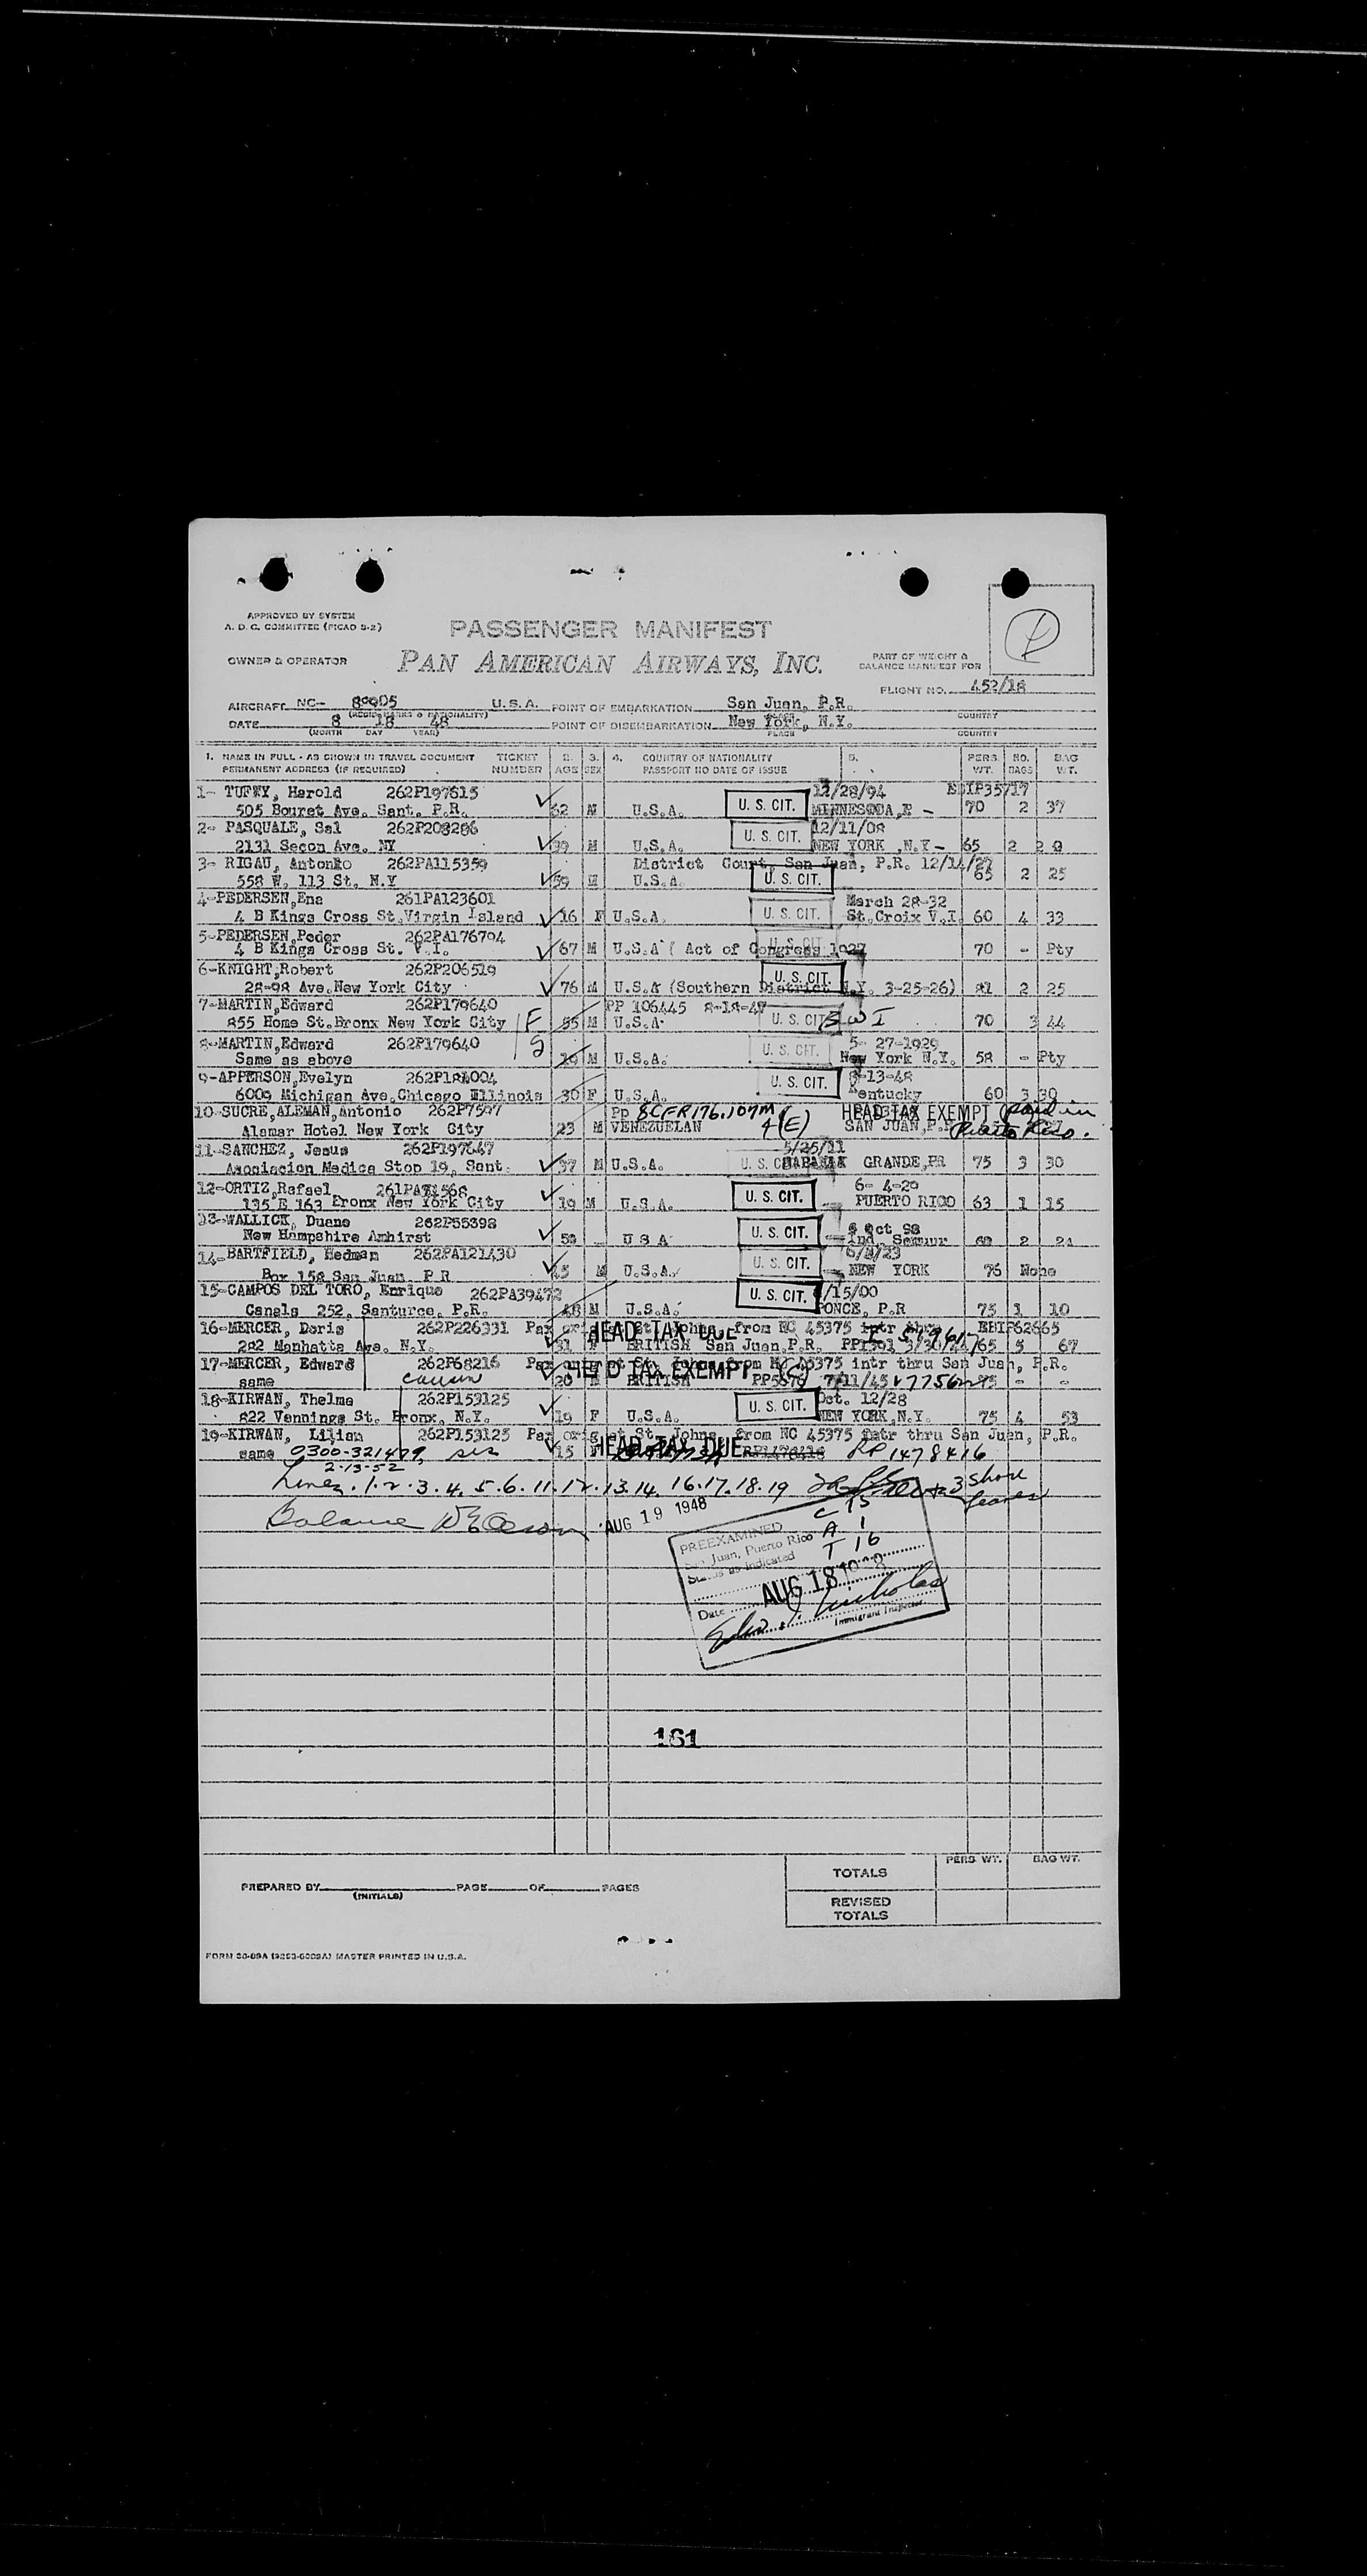 APPROVED BY SYSTEM
A. D. C. COMMITTEE (PICAO 9-2)
PASSENGER MANIFEST
OWNER & OPERATOR
PAN AMERICAN AIRWAYS, INC.
PART OF WEIGHT &
BALANCE MANIFEST FOR
FLIGHT NO. 452/18
AIRCRAFT NC- U.S.A. POINT OF EMBARKATION San Juan, P.R.
DATE 8 18 48 POINT OF DISEMBARKATION New York, N.Y.
(MONTH DAY YEAR) PLACE COUNTRY
1. NAME IN FULL - AS SHOWN IN TRAVEL DOCUMENT TICKET 2. 3. 4. COUNTRY OF NATIONALITY 5. PERS. NO. BAG
PERMANENT ADDRESS (IF REQUIRED) NUMBER AGE SEX PASSPORT NO DATE OF ISSUE WT. BAGS WT.
1- TUFFY, Harold 262P197615 12/28/94
505 Bouret Ave. Sant. P.R. 62 M U.S.A. U. S. CIT. 70 2 37
2- PASQUALE, Sal 262P208286 12/11/08
2131 Secon Ave. NY 39 M U.S.A. U. S. CIT. NEW YORK ,N.Y- 65
3- RIGAU, Antonio 262PA115359 District Court, San Juan, P.R.
558 W. 113 St. N.Y 59 M U.S.A. U. S. CIT. 65 2 25
4-PEDERSEN,Ena 261PA123601 March 28-32
4 B Kings Cross St.Virgin Island 16 F U.S.A. U. S. CIT. St.Croix V.I. 60 4 33
5-PEDERSEN,Peder 262PA176794
4 B Kings Cross St. V.I. 67 M U.S.A ( Act of Congress 1927 70 - Pty
6-KNIGHT,Robert 262P206519 U.S.CIT.
28-98 Ave.New York City 76 M U.S.A (Southern District N.Y. 3-25-26) 81 2 25
7-MARTIN,Edward 262P179640 PP 106445 8-18-47
855 Home St.Bronx New York City 55 M U.S.A. U. S. CIT B W I 70 3 44
8-MARTIN,Edward 262P179640 5- 27-1929
Same as above 19 M U.S.A. U. S. CIT. New York N.Y. 58 - Pty
9-APPERSON,Evelyn 262P184004 8-13-48
6009 Michigan Ave.Chicago Illinois 30 F U.S.A. U. S. CIT. Kentucky 60 3 30
10-SUCRE,ALEMAN,Antonio 262P7597 PP 8CFR176.107M HEAD TAX EXEMPT Paid in
Alamar Hotel New York City 23 M VENEZUELAN 4(E) SAN JUAN,P.R Puerto Rico.
11-SANCHEZ, Jesus 262P197647 5/25/11
Asociacion Medica Stop 19, Sant. 37 M U.S.A. GRANDE,PR 75 3 30
12-ORTIZ,Rafael 6- 4-29
135 E 163 Bronx New York City 19 M U.S.A. U. S. CIT. PUERTO RICO 63 1 15
13-WALLICK, Duane 262P55398
New Hampshire Amhirst U S A U. S. CIT.
14-BARTFIELD, Hedman 262PA121430
Box 158 San Juan, P.R M U.S.A. U. S. CIT. NEW YORK 76 None
15-CAMPOS DEL TORO, Enrique 262PA39472 /15/00
Canals 252, Santurce, P.R. 48 M U.S.A. U. S. CIT. PONCE, P.R 75 1 10
16-MERCER, Doris 262P226331 HEAD TAX DUE from NC 45375 intr thru
282 Manhatta Ave. N.Y. 31 F BRITISH San Juan,P.R. 65 5 67
17-MERCER, Edward 262P68216 from NC 45375 intr thru San Juan, P.R.
same cousin HEAD TAX EXEMPT 20 M BRITISH 75 - -
18-KIRWAN, Thelma 262P153125 Oct. 12/28
822 Vennings St. Bronx, N.Y. 19 F U.S.A. U. S. CIT. NEW YORK,N.Y. 75 4 53
19-KIRWAN, Lilian 262P153125 Pax orig at St. Johns, from NC 45375 intr thru San Juan, P.R.
same 0300-321479, sis 15 F HEAD TAX DUE RP 1478416
2-13-52
Lines .1.2.3.4.5.6.11.12.13.14.16.17.18.19
Balance
AUG 19 1948
PREEXAMINED
San Juan, Puerto Rico
Status as indicated
C 15
A 1
T 16
Date AUG 18
Immigrant Inspector
161
PERS. WT. BAG WT.
TOTALS
PREPARED BY PAGE OF PAGES
(INITIALS)
REVISED
TOTALS
MASTER PRINTED IN U.S.A.